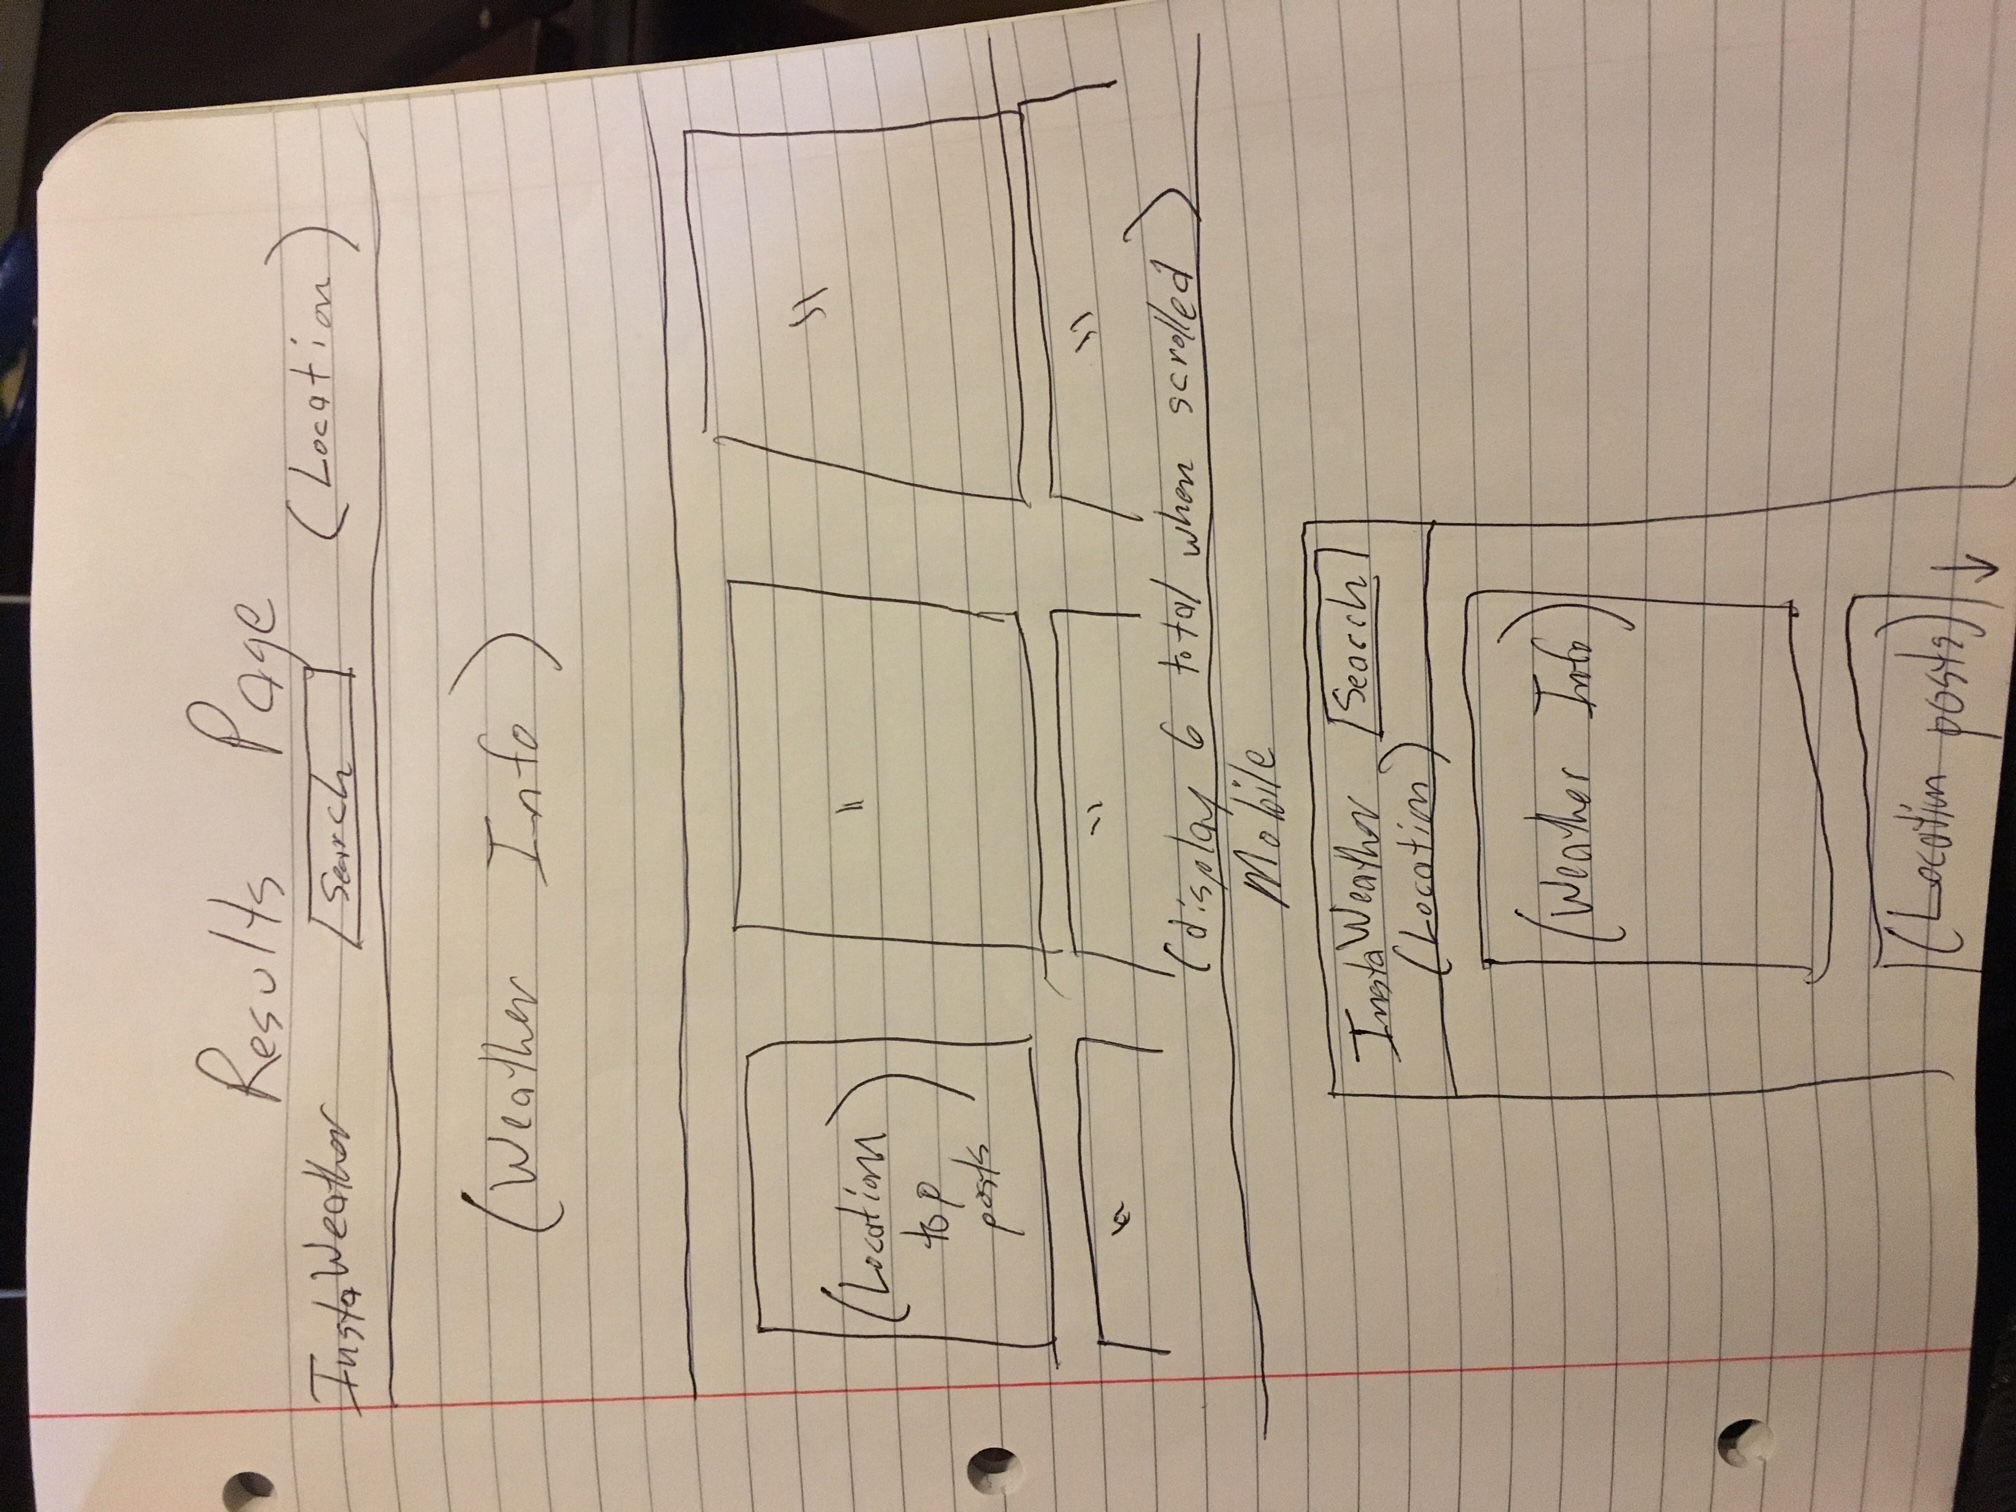 Results Page
InstaWeather Search (Location)
(Weather Info)
(Location
top
posts)
" "
" " "
(display 6 total when scrolled)
Mobile
InstaWeather Search
(Location)
(Weather Info)
(Location posts) ↓